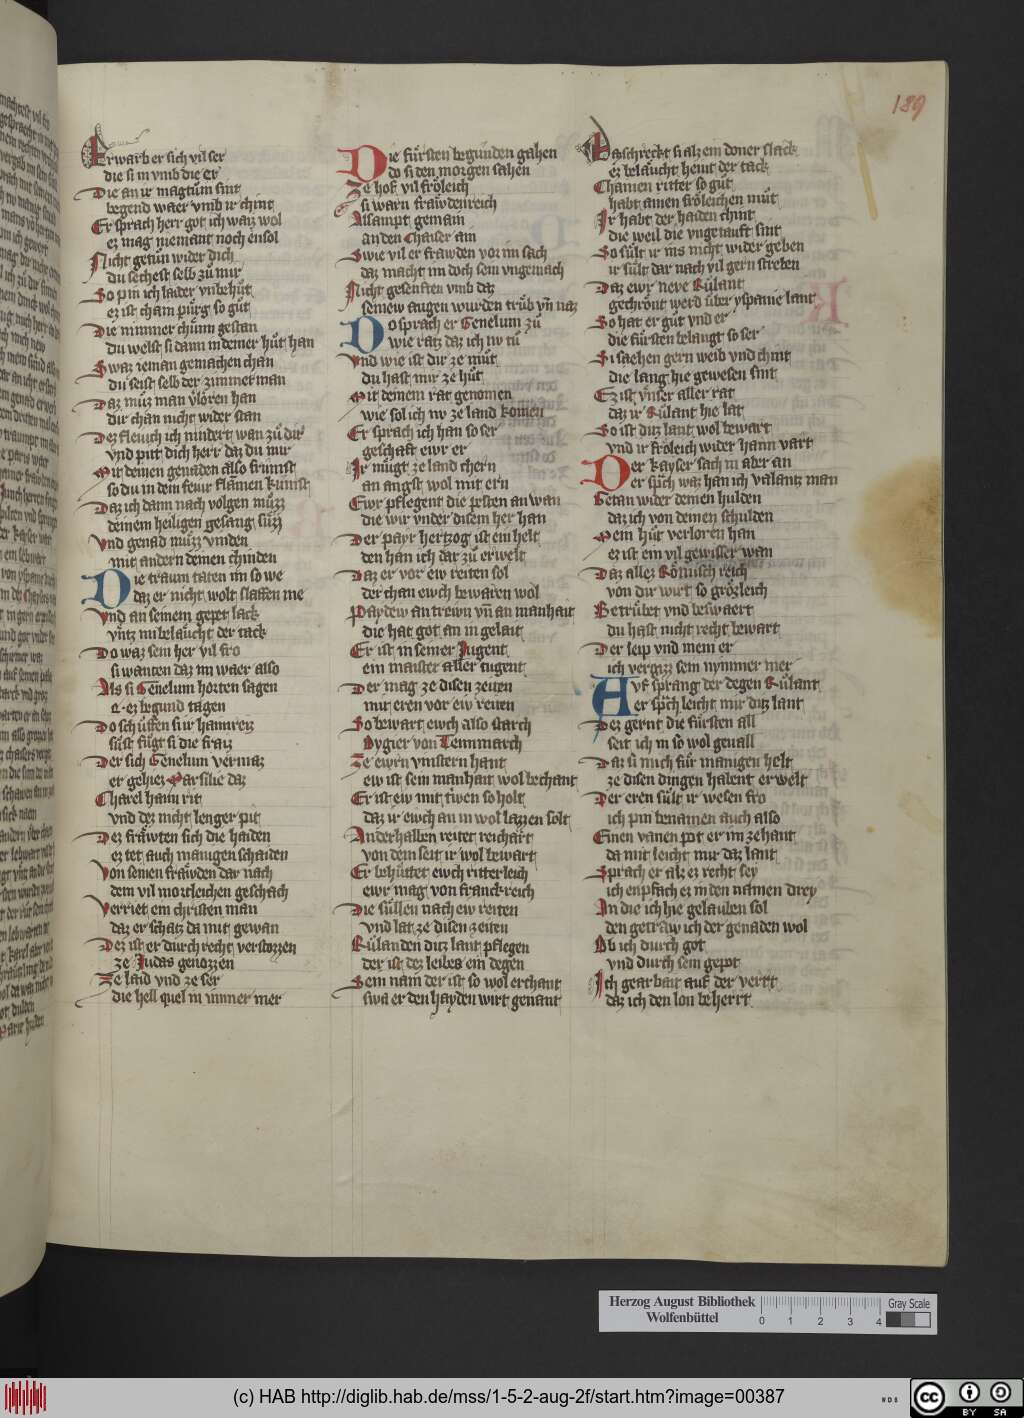 189
Erwarb er sich vil ser
die si in vmb die er
Die an ir magtům sint
begend waer vmb ir chint
Er sprach herr got ich waiz wol
ez mag niemant noch ensol
Nicht getůn wider dich
du sechest selb zů mir
So pin ich laider vnbehůt
ez ist cham pürg so gůt
Die nimmer chünn gestan
Du welst si dann in deiner hůt han
Swaz ieman gemachen chan
du seist selb der zimmerman
Daz můz man v̓lóren han
dir chan nicht wider stan
Dez fleuch ich nindert wan zů dir
vnd put dich herr daz du mir
Mit deinen genaden also frümst
so du in dem fewr flamen kumst
Daz ich dann nach volgen můzz
deinem heiligen gesang sůzz
Vnd genad můzz vinden
mit andern deinen chinden
Die traum taten im so we
Daz er nicht wolt slaffen me
Vnd an seinem gepet lack
vntz in belaücht der tack
Do waz sein her vil fro
si wanten daz im waer also
Als si Genelum horten sagen
ez begund tagen
Do schüffen si ir hamreiz
süst fügt si die fraiz
Der sich Genelum vermaz
er gehiez Marsilie daz
Charel haim rit
vnd dez nicht lenger pit
Dez fräwten sich die haiden
ez tet auch manigen schaiden
Von seinen fräwden dar nach
dem vil mortleichen geschach
Verriet em christen man
daz er schatz da mit gewan
Dez ist er durch recht verstozzen
ze Judas genozzen
Ze laid vnd ze ser
die hell quel in iimmer mer
Die fürsten begunden gahen
do si den morgen sahen
Ze hof vil fröleich
si warn frawdenreich
Allsampt gemain
an den Chaiser ain
Swie vil er frawden vor im sach
daz macht im doch sein vngemach
Nicht gesenften vmb daz
seinew augen wurden trüb vn̄ naz
Do sprach er Genelum zů
wie ratz daz ich nv tů
Vnd wie ist dir ze můt
du hast mir ze hůt
Mit deinem rat genomen
wie sol ich nv ze land komen
Er sprach ich han so ser
geschaft ewr er
Ir mügt ze land chern
an angst wol mit ern
Ewr pflegent die pesten an wan
die wir vnder disem her han
Der payr hertzog ist ein helt
den han ich dar zů erwelt
Daz er vor ew reiten sol
der chan ewch bewaren wol
Paydew an trewn vn̄ an manhait
die hat got an in gelait
Er ist in seiner Jugent
ein maister aller tugent
Der mag ze disen zeiten
mit eren vor ew reiten
So bewart ewch also starch
Oygier von Tennmarch
Ze ewrn vinstern hant
ew ist sein manhait wol bechant
Er ist ew mit triwen so holt
daz ir ewch an in wol lazzen solt
Anderhalben reitet reichart
von dem seit ir wol bewart
Er behüttet ewch ritterleich
ewr mag von franckreich
Die süllen nach ew reiten
vnd lat ze disen zeiten
Růlanden ditz lant pflegen
der ist dez leibes ein degen
Sein nam der ist so wol erchant
swa er den hayden wirt genant
Daschreckt si alz ein doner slack
ez belaücht hewt der tack
Chamen ritter so gůt
habt ainen fröleichen můt
Ir habt der haiden chint
die weil die vngetauft sint
So sült ir ins nicht wider geben
ir sült dar nach vil gern streben
Daz ewr neve Růlant
gechrönt werd über yspanie lant
So hat er gůt vnd er
die fürsten belangt so ser
Si saehen gern weib vnd chint
die lang hie gewesen sint
Ez ist vnser aller rat
daz ir Růlant hie lat
So ist ditz lant wol bewart
vnd ir fröleich wider haim vart
Der kayser sach in aber an
er sp̄ch waz han ich valantz man
Getan wider deinen hulden
daz ich von deinen schulden
Mein hůt verloren han
ez ist ein vil gewisser wan
Daz allez Römisch reich
von dir wirt so grözleich
Betrübet vnd beswaert
du hast nicht recht bewart
Der leip vnd mein er
ich vergizz sein nymmer mer
Auf sprang der degen Růlant
er sp̄ch leicht mir ditz lant
Dez gernt die fürsten all
seit ich in so wol geuall
Daz si mich für manigen helt
ze disen dingen habent erwelt
Der eren sült ir wesen fro
ich pin benamen auch also
Einen vanen pot er im ze hant
da mit leicht mir daz lant
Sprach er alz ez recht sey
ich enpfach ez in den namen drey
An die ich hie gelauben sol
den getraw ich der genaden wol
Ob ich durch got
vnd durch sein gepot
Icht gearbait auf der vertt
daz ich den lon beherrt
Herzog August Bibliothek
Wolfenbüttel
0 1 2 3 4
Gray Scale
(c) HAB http://diglib.hab.de/mss/1-5-2-aug-2f/start.htm?image=00387
WDB
cc
BY SA